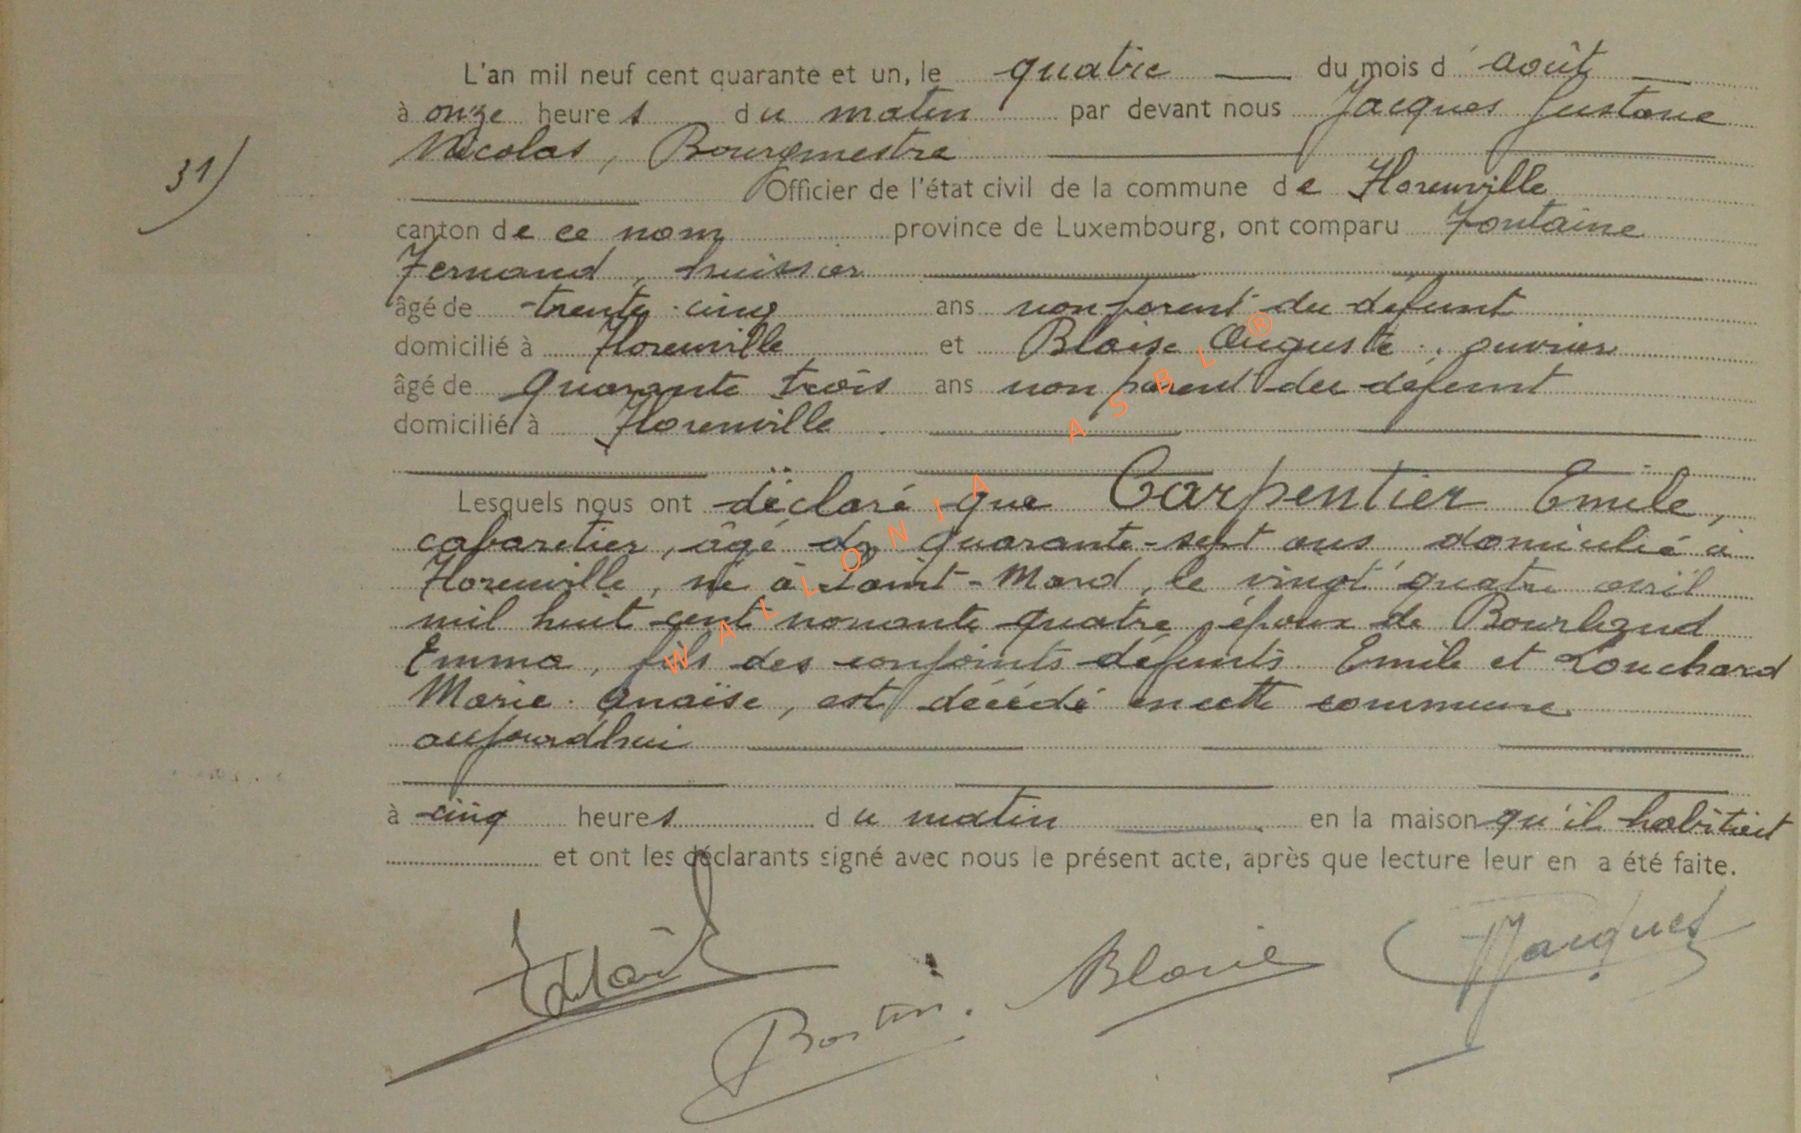 L'an mil neuf cent quarante et un, le quatre du mois d'août
à onze heures du matin par devant nous Jacques Gustave
Nicolas, Bourgmestre
31)
Officier de l'état civil de la commune de Florenville
canton de ce nom province de Luxembourg, ont comparu Fontaine
Fernand, huissier
âgé de trente-cinq ans non parent du défunt
domicilié à Florenville et Blaise Auguste, ouvrier
âgé de quarante trois ans non parent du défunt
domicilié à Florenville.
Lesquels nous ont déclaré que Carpentier Emile,
cabaretier, âgé de quarante-sept ans domicilié à
Florenville, né à Saint-Mard, le vingt quatre avril
mil huit cent nonante quatre, époux de Bourlezud
Emma, fils des conjoints défunts Emile et Louchard
Marie-Anaïse, est décédé en cette commune
aujourdhui
à cinq heures du matin en la maison qu'il habitait
et ont les déclarants signé avec nous le présent acte, après que lecture leur en a été faite.
Blaise Jacques
WALLONIA ASBL ®